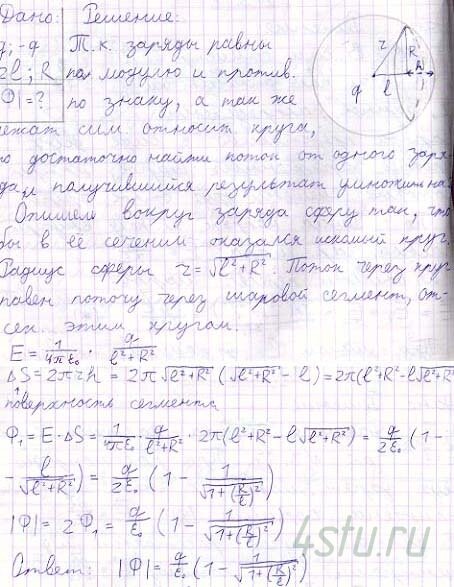 Дано: Решение:
q, -q Т.к. заряды равны
2l; R по модулю и против.
|Ф|=? по знаку, а так же
лежат сим относит круга,
то достаточно найти поток от одного заря-
да, и получившийся результат умножить на
Опишем вокруг заряда сферу так, что
бы в её сечении оказался искомый круг.
Радиус сферы r = √(l²+R²). Поток через круг
равен потоку через шаровой сегмент, от-
сек. этим кругом.
E = 1/(4πε₀) · q/(l²+R²)
ΔS = 2πrh = 2π√(l²+R²) (√(l²+R²) - l) = 2π(l²+R² - l√(l²+R²)
поверхность сегмента
Ф₁ = E·ΔS = 1/(4πε₀) · q/(l²+R²) · 2π(l²+R² - l√(l²+R²)) = q/(2ε₀) (1 -
- l/√(l²+R²)) = q/(2ε₀) (1 - 1/√(1+(R/l)²))
|Ф| = 2Ф₁ = q/ε₀ (1 - 1/√(1+(R/l)²))
Ответ: |Ф| = q/ε₀ (1 - 1/√(1+(R/l)²))
r R h
q l
4stu.ru